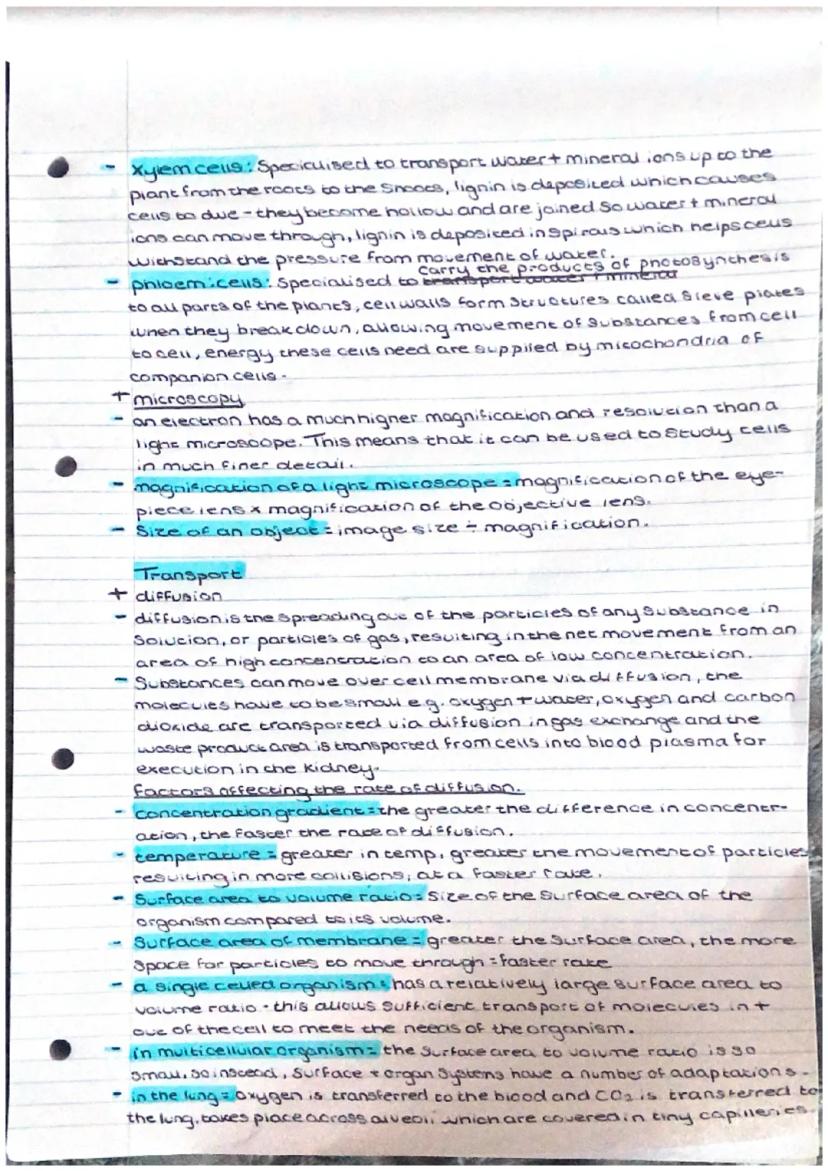 - Xylem cells: Specialised to transport water + mineral ions up to the
plant from the roots to the shoots, lignin is deposited which causes
cells to due - they become hollow and are joined so water + mineral
ions can move through, lignin is deposited in spirals which helps cells
withstand the pressure from movement of water.
carry the products of photosynthesis
- phloem cells: Specialised to transport water + mineral
to all parts of the plants, cell walls form structures called sieve plates
when they break down, allowing movement of substances from cell
to cell, energy these cells need are supplied by mitochondria of
companion cells.
+ microscopy
- an electron has a much higher magnification and resolution than a
light microscope. This means that it can be used to study cells
in much finer detail.
- magnification of a light microscope = magnification of the eye-
piece lens x magnification of the objective lens.
- Size of an object = image size ÷ magnification.
Transport
+ diffusion
- diffusion is the spreading out of the particles of any substance in
solution, or particles of gas, resulting in the net movement from an
area of high concentration to an area of low concentration.
- Substances can move over cell membrane via diffusion, the
molecules have to be small e.g. oxygen + water, oxygen and carbon
dioxide are transported via diffusion in gas exchange and the
waste product area is transported from cells into blood plasma for
execution in the kidney.
Factors affecting the rate of diffusion.
- Concentration gradient = the greater the difference in concentr-
ation, the faster the rate of diffusion.
- temperature = greater in temp, greater the movement of particles
resulting in more collisions, at a faster rate.
- Surface area to volume ratio = Size of the surface area of the
organism compared to its volume.
- Surface area of membrane = greater the surface area, the more
space for particles to move through = faster rate
- a single celled organism = has a relatively large surface area to
volume ratio - this allows sufficient transport of molecules in +
out of the cell to meet the needs of the organism.
- in multicellular organism = the surface area to volume ratio is so
small, so instead, surface + organ systems have a number of adaptations.
- in the lung = oxygen is transferred to the blood and CO₂ is transferred to
the lung, takes place across alveoli which are covered in tiny capilleries.